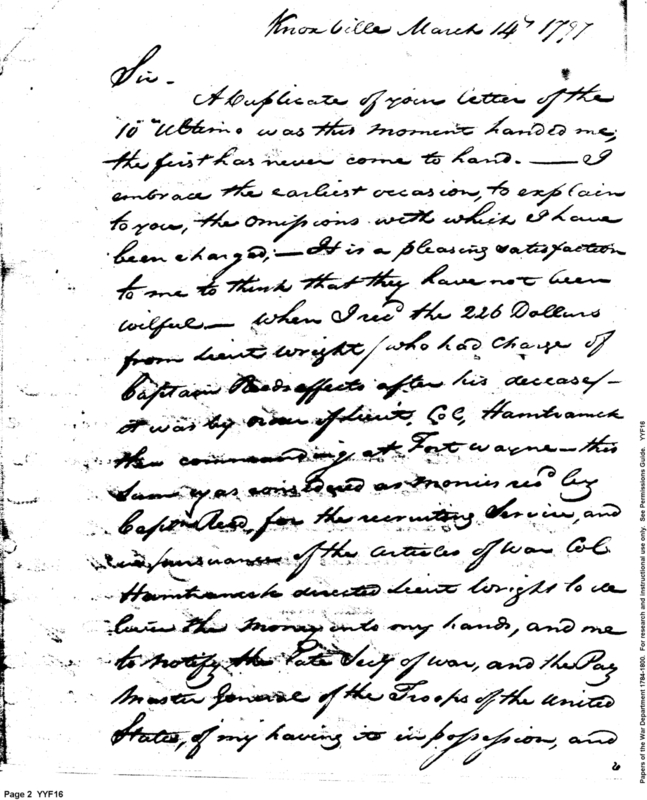 Knoxville March 14th 1797
Sir -
A Duplicate of your letter of the
10th Ultimo was this moment handed me,
the first has never come to hand. — I
embrace the earliest occasion, to explain
to you, the omissions with which I have
been charged; — It is a pleasing satisfaction
to me to think that they have not been
wilful — when I recd the 226 Dollars
from Lieut Wright / who had charge of
Captain Reeds effects after his decease / —
it was by order of Lieut, Col, Hamtramck
then commanding at Fort Wayne — this
Sum was considered as monies recd by
Captn Reed, for the recruiting Service, and
in pursuance of the articles of war Col
Hamtramck directed Lieut Wright to de
liver the money into my hands, and me
to notify the late Secy of war, and the Pay
Master General of the Troops of the United
States, of my having it in possession, and
Page 2 YYF16
Papers of the War Department 1784-1800. For research and instructional use only. See Permissions Guide. YYF16